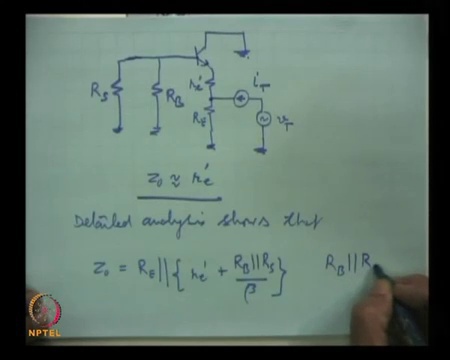 R_S
R_B
r_e'
R_E
i_T
v_T
z_o ≈ r_e'
Detailed analysis shows that
z_o = R_E || { r_e' + (R_B || R_S) / β }
R_B || R
NPTEL